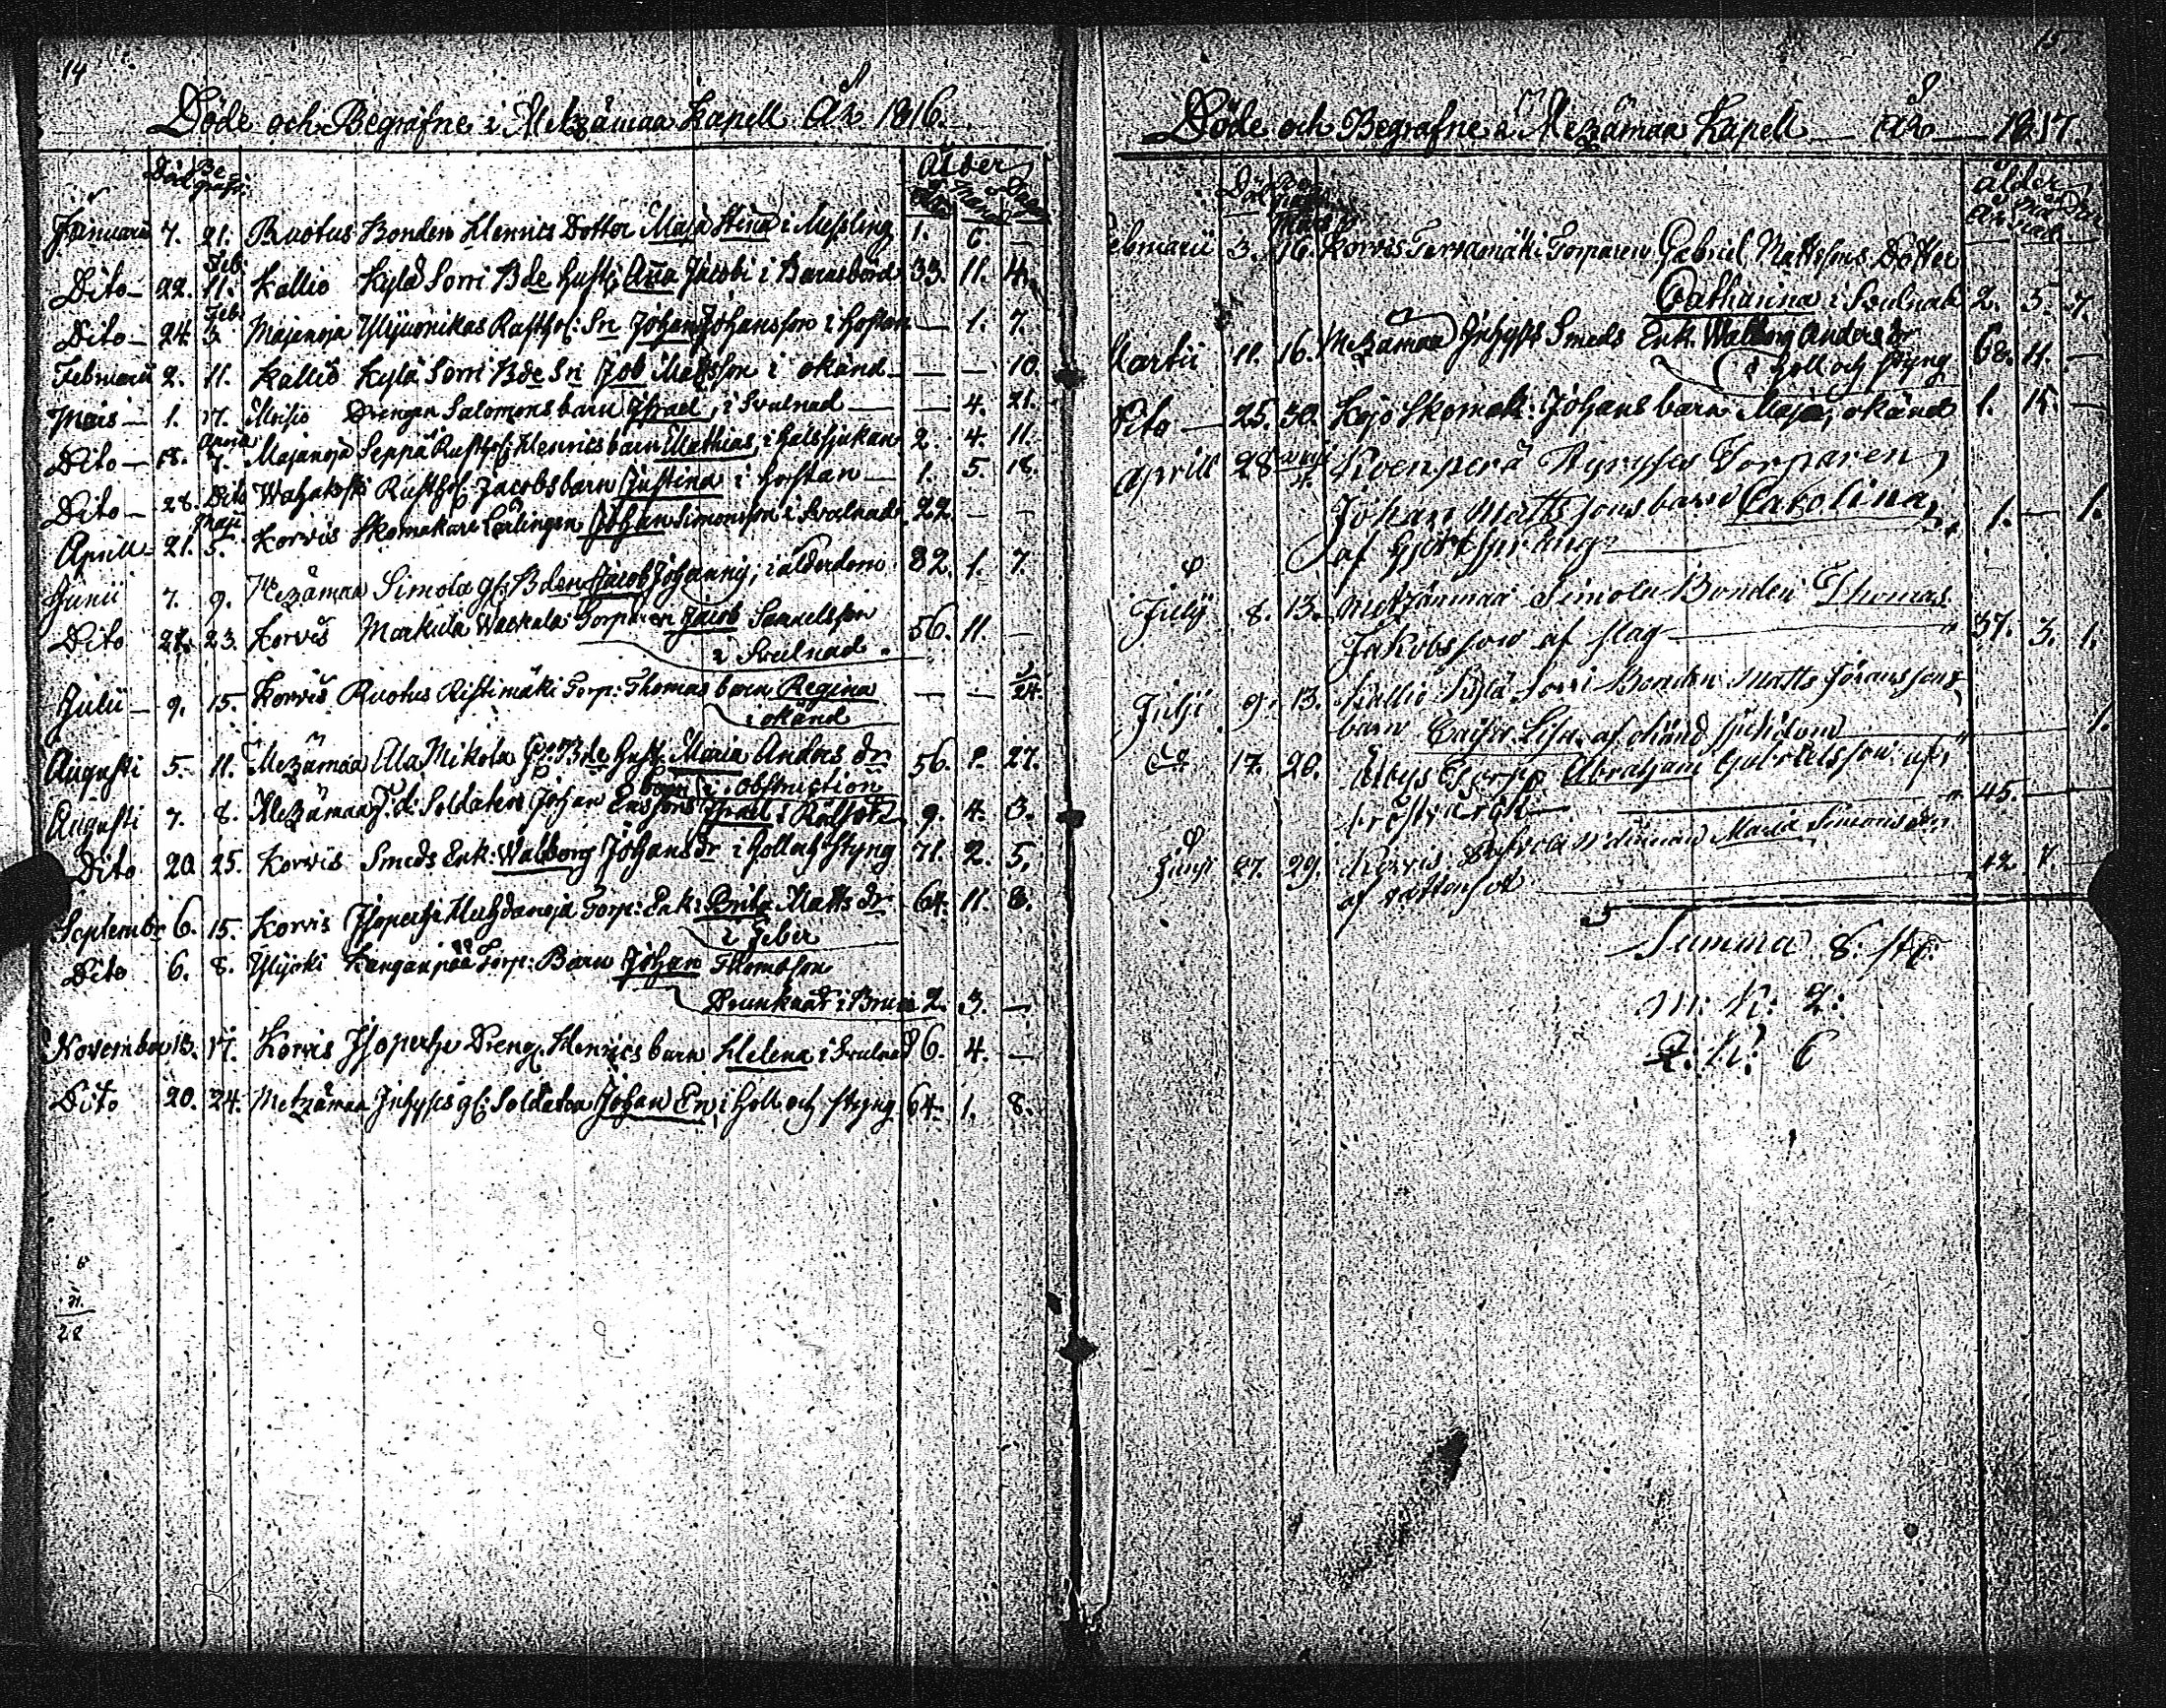 14
Döde och Begrafne i Metzämaa Kapell År 1816.
Död Begrafn: Ålder
År Månad Dagar
Januarii 7. 21. Ruotus Bonden Henrics Dotter Maja Stina i Messling 1. 6. —
Dito — 22. Feb: 11. Kallio Kylä Sorri Bde hust; Anna Jacobi i Barnsbörd 33. 11. 4.
Dito — 24. Feb: 3. Majanoja Rusth: Sn Johan Johansson i Hostan — 1. 7.
Februarii 2. 11. Kallio Kylä Sorri Bde Sn Job Matsson i okänd — — 10.
Mars — 1. 17. Drengen Salomons barn Israel, i Svulnad — — 4. 21.
Dito — 18. April 7. Majanoja Seppä Rusth: Henrics barn Mathias, i Halssjukan 2. 4. 11.
Dito — 28. Dito Rusth: Jacobs barn Justina i Hostan — 1. 5. 18.
Aprill 21. Maji 5. Korvis Skomakare Lärlingen Johan Simonsson i Svulnad 22 — —
Junii 7. 9. Mezämaa Simola gl: Bden Jacob Johanns; i ålderdom 82. 1. 7.
Dito 21. 23. Korvis Markula Torparen Jacob Samuelsson
i Svulnad. 56. 11. —
Julii — 9. 15. Korvis Ruotus Ristimäki Torp: Thomas barn Regina
i okänd — — 24.
Augusti 5. 11. Mezämaa Ala Mikola Bde Hust. Maria Anders dr
i obstruction 56. 2. 27.
Augusti 7. 8. Mezämaa Soldaten Johan Enssons barn Israel i Rödsot 9. 4. 3.
Dito 20. 25. Korvis Smeds Enk: Walborg Johans dr i Håll och Styng 71. 2. 5.
Septembr 6. 15. Korvis Isoperhe Torp: Enk: Brita Matts dr
i Feber 64. 11. 8.
Dito 6. 8. Ylijoki Kanganpää Torp: Barn Johan Thomasson
Drunknat i Brun 2. 3. —
November 13. 17. Korvis Isoperhe Dreng. Henrics barn Helena i Svulnad 6. 4. —
Dito 20. 24. Metzämaa Juhyses gl: Soldaten Johan En, i Håll och styng 64. 1. 8.
6
21.
28
15.
Döde och Begrafne i Mezämaa Kapell År 1817.
Död ålder
År
Februarii 3. Mars 16. Korvis Torparen Gabriel Mattssons Dotter
Catharina i Svulnad 2. 5. 7.
Martii 11. 16. Mezämaa Juhyses Smeds Enk. Walborg Anders dr
i Håll och styng 68. 11. —
Dito — 25. 30. Kojo Skomak: Johans barn Maja, okänd 1. 15. —
Aprill 28 maij 4. Kvenperä Torparen
Johan Mattssons barn Carolina,
af 1. — 1.
Julij 8. 13. Metzämaa Simola Bonden Thomas
Jakobsson af slag 37. 3. 1.
Julij 9. 13. Kallio Kylä Sorri Bonden Matts Johanssons
barn Caisa Lisa af okänd sjukdom 1.
17. 20. Abraham Gabrielsson af
bröstvärk 45. —
Junij 27. 29. Korvis Maria Simonsdr
af vattusot 42. 7. —
Summa 8. st:
M: K: 2:
Q: K: 6